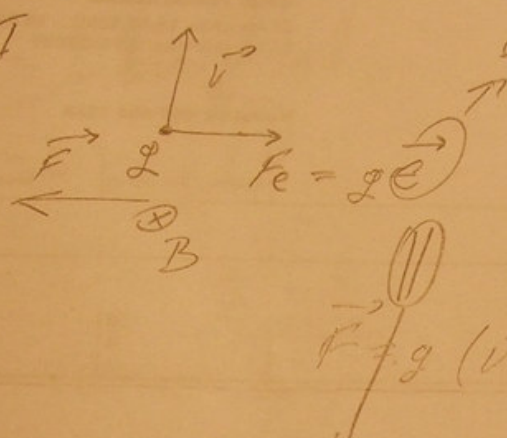 v
F
q
Fe = qE
B
F = q (v